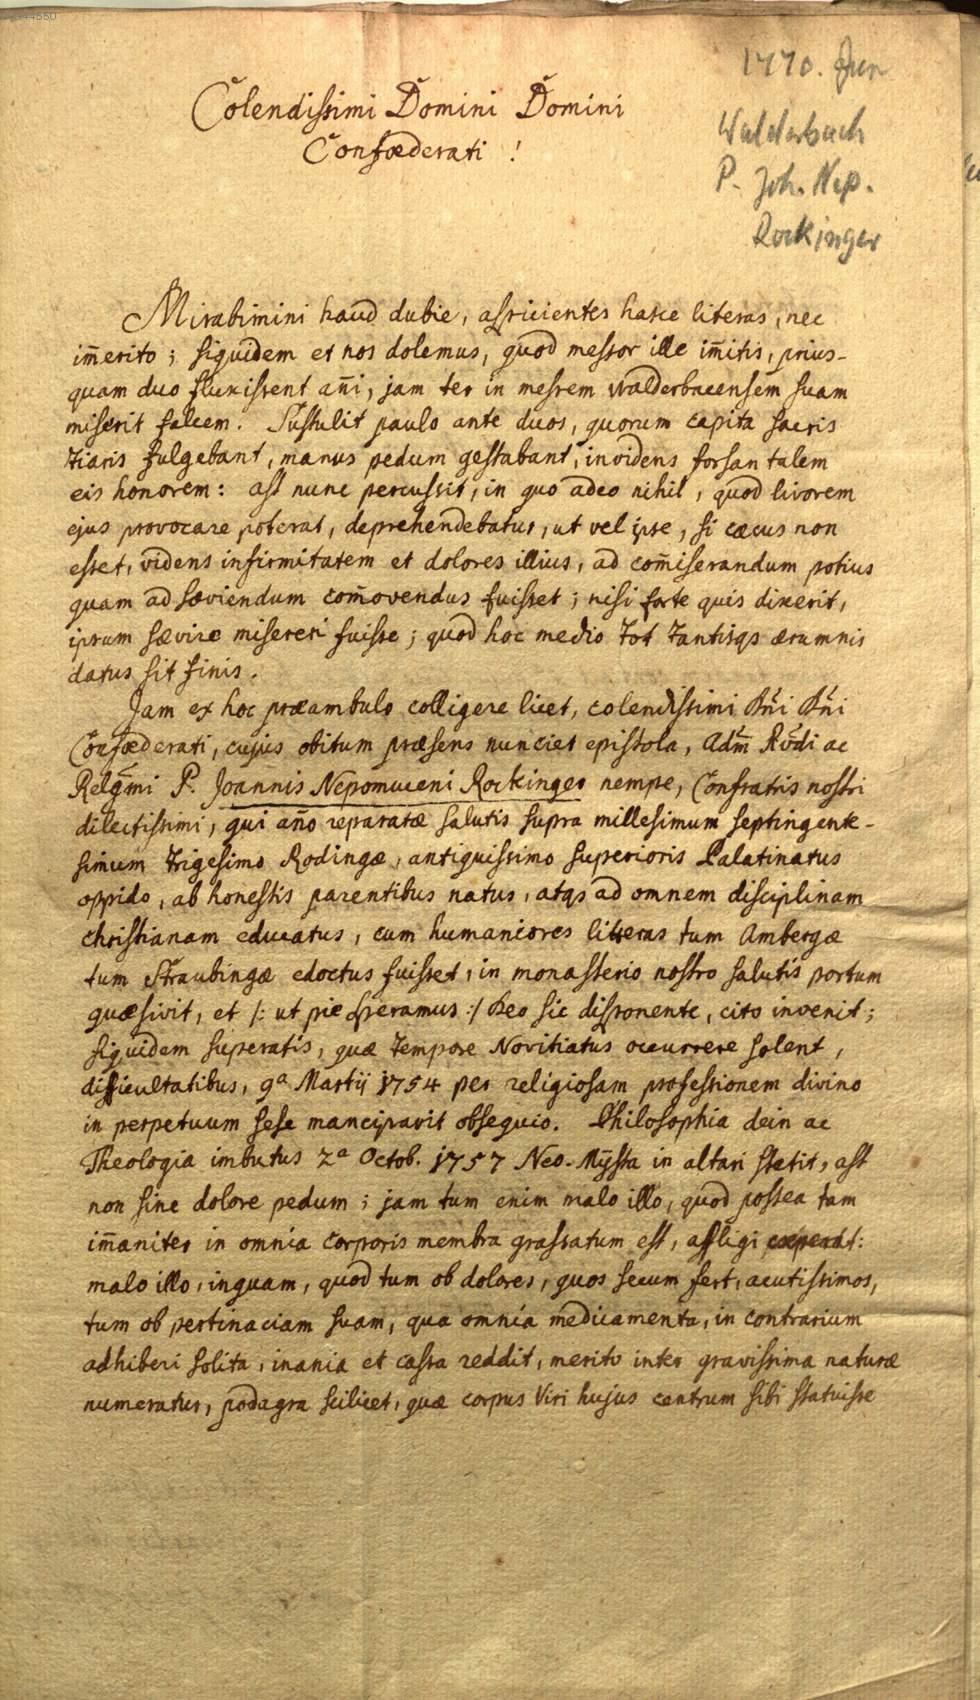 Colendissimi Domini Domini
Confœderati !
1770. Jun
Walderbach
P. Joh. Nep.
Rockinger
Mirabimini haud dubie, aspicientes hasce literas, nec
im̄erito ; siquidem et nos dolemus, quod messor ille im̄itis, prius-
quam duo fluxissent an̄i, jam ter in messem Walderbacensem suam
miserit falcem. Sustulit paulo ante duos, quorum capita sacris
tiaris fulgebant, manus pedum gestabant, invidens forsan talem
eis honorem : ast nunc percussit, in quo adeo nihil, quod livorem
ejus provocare poterat, deprehendebatur, ut vel ipse, si cæcus non
esset, videns infirmitatem et dolores illius, ad com̄iserandum potius
quam ad sæviendum com̄ovendus fuisset ; nisi forte quis dixerit,
ipsum sævire misereri fuisse ; quod hoc medio tot tantisqs ærumnis
datus sit finis.
Jam ex hoc præambulo colligere licet, colendissimi Dn̄i Dn̄i
Confœderati, cujus obitum præsens nunciet epistola, Adm̄ Rv̄di ac
Relgm̄i P. Joannis Nepomuceni Rockinger nempe, Confratris nostri
dilectissimi, qui an̄o reparatæ salutis supra millesimum septingente-
simum trigesimo Rodingæ, antiquissimo superioris Palatinatus
oppido, ab honestis parentibus natus, atqs ad omnem disciplinam
christianam educatus, cum humaniores litteras tum Ambergæ
tum Straubingæ edoctus fuisset, in monasterio nostro salutis portum
quæsivit, et /: ut pie speramus :/ Deo sic disponente, cito invenit ;
siquidem superatis, quæ tempore Novitiatus occurrere solent,
difficultatibus, 9a Martij 1754 per religiosam professionem divino
in perpetuum sese mancipavit obsequio. Philosophia dein ac
Theologia imbutus 2a Octob. 1757 Neo-Mijsta in altari stetit, ast
non sine dolore pedum ; jam tum enim malo illo, quod postea tam
im̄aniter in omnia corporis membra grassatum est, affligi cæperat :
malo illo, inquam, quod tum ob dolores, quos secum fert, acutissimos,
tum ob pertinaciam suam, qua omnia medicamenta, in contrarium
adhiberi solita, inania et cassa reddit, merito inter gravissima naturæ
numeratur, podagra scilicet, quæ corpus Viri hujus centrum sibi statuisse